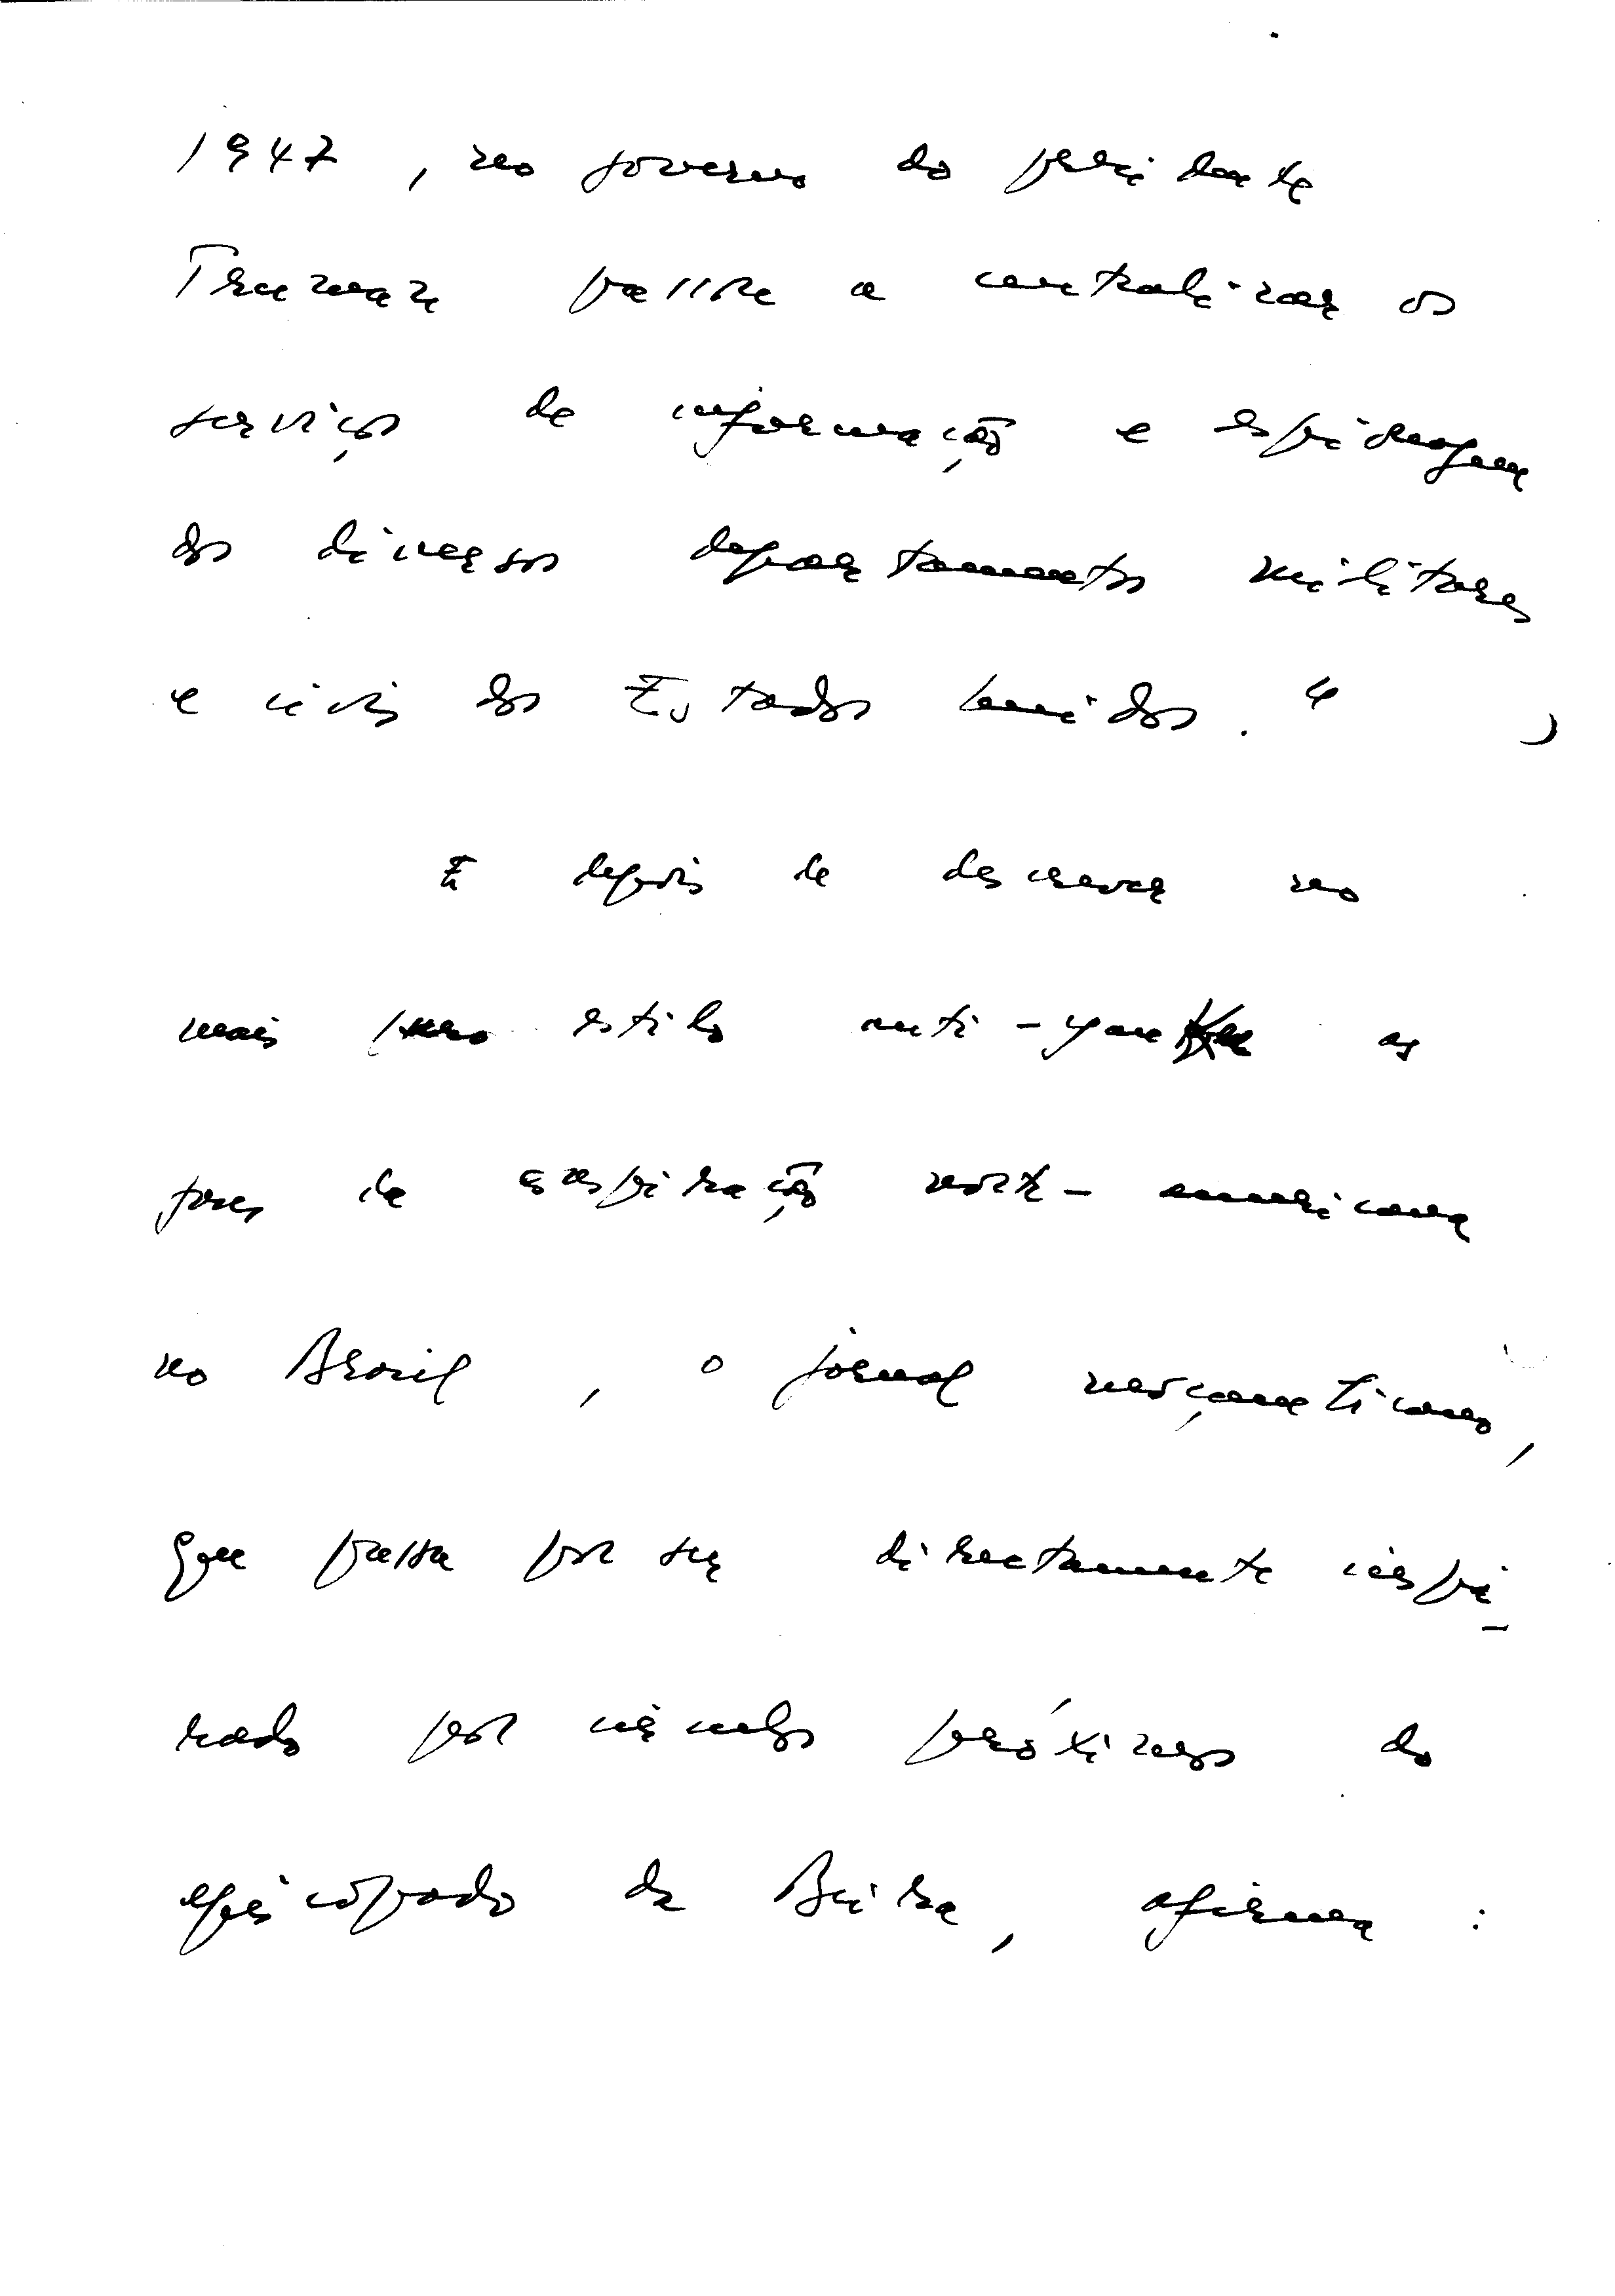 1947, no governo do presidente
Truman passa a centralizar os
serviços de informação e espionagem
dos diversos departamentos militares
e civis dos Estados Unidos."
E depois de descrever no
mais puro estilo anti-yankee as
de conspiração norte-americana
no Brasil, o jornal
que passa por ser directamente inspi-
rado por círculos próximos do
episcopado da Beira, afirma: